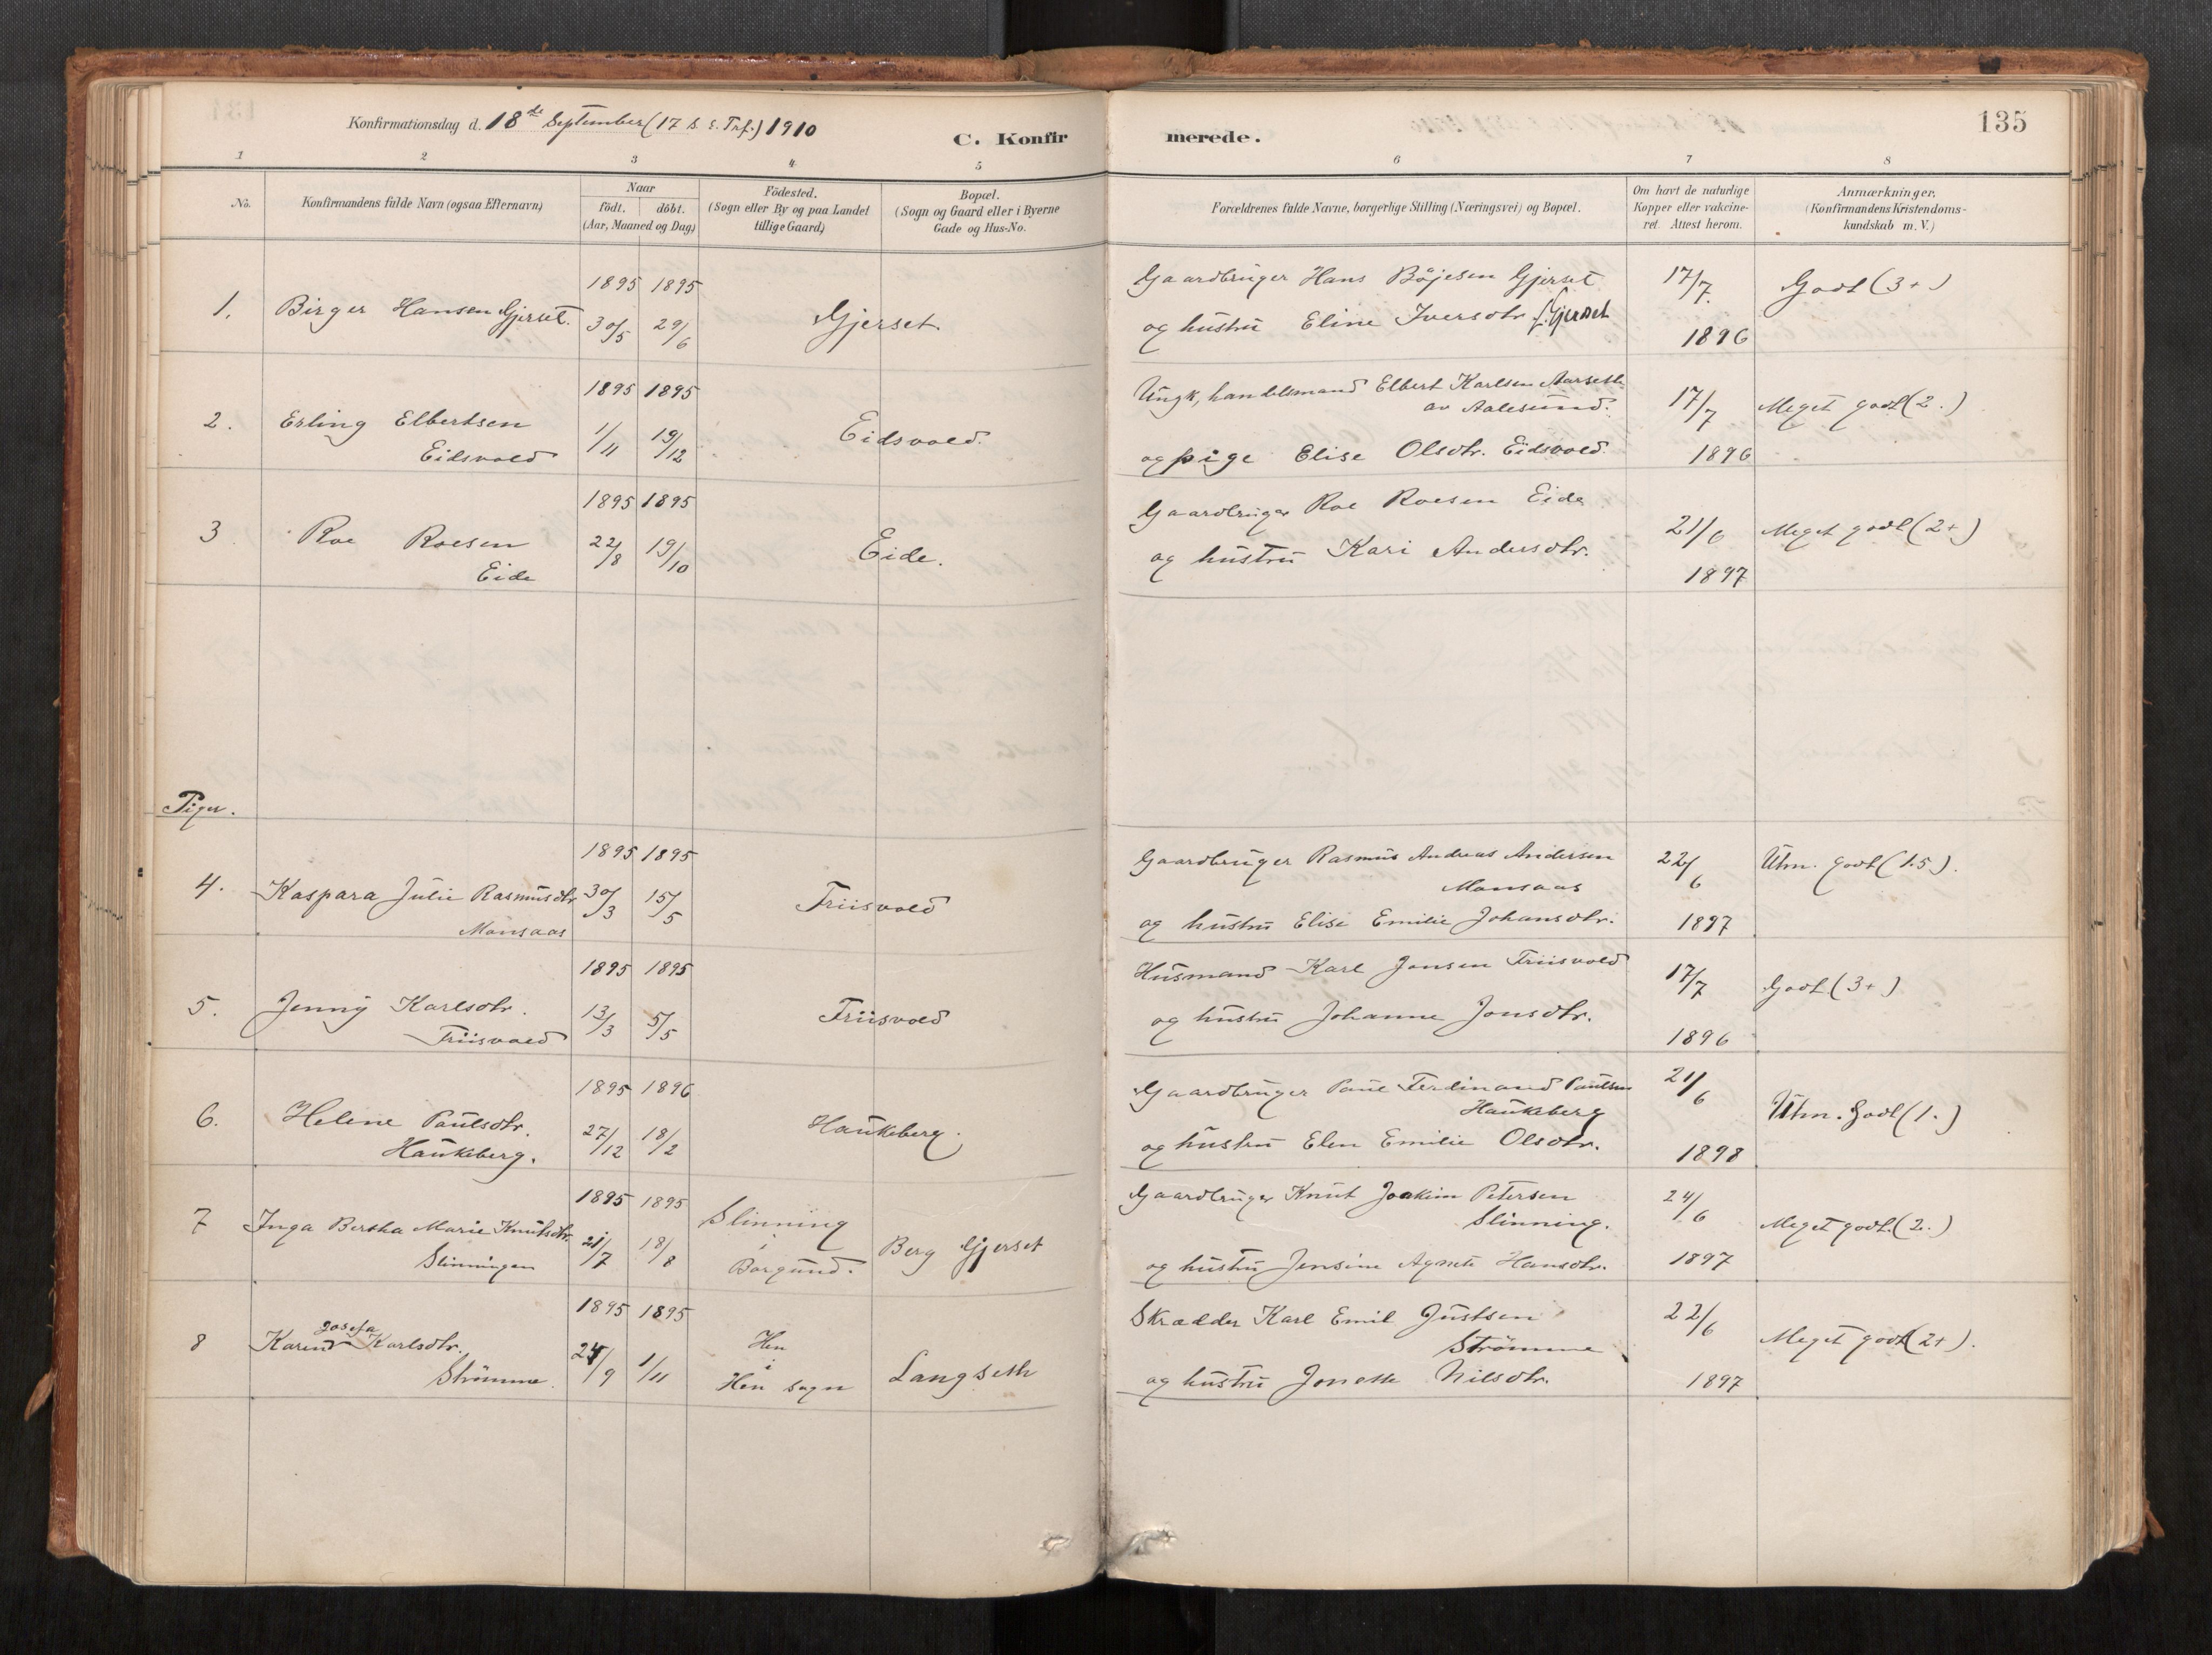 Konfirmationsdag d. 18de September (17 s. e. Tref.) 1910
C. Konfirmerede.
135
1 2 3 4 5 6 7 8
No.
Konfirmandens fulde Navn (ogsaa Efternavn)
Naar
födt. döbt.
(Aar, Maaned og Dag)
Födested.
(Sogn eller By og paa Landet
tillige Gaard)
Bopæl.
(Sogn og Gaard eller i Byerne
Gade og Hus-No.
Forældrenes fulde Navne, borgerlige Stilling (Næringsvei) og Bopæl.
Om havt de naturlige
Kopper eller vakcine-
ret. Attest herom.
Anmærkninger.
(Konfirmandens Kristendoms-
kundskab m. V.)
1. Birger Hansen Gjerset.
1895 1895
30/5 29/6
Gjerset.
Gaardbruger Hans Böjesen Gjerset
og hustru Eline Iversdtr. f. Gjerset
17/7 1896
Godt (3+)
2. Erling Elbertsen
Eidsvold
1895 1895
1/11 19/12
Eidsvold.
Ungk, handelsmand Elbert Karlsen Aarseth
av Aalesund.
og pige Elise Olsdtr. Eidsvold.
17/7 1896
Meget godt (2.)
3 Roe Roesen
Eide
1895 1895
22/8 19/10
Eide.
Gaardbruger Roe Roesen Eide
og hustru Kari Andersdtr.
21/6 1897
Meget godt (2+)
Piger.
4. Kaspara Julie Rasmusdtr
Monsaas
1895 1895
30/3 15/5
Friisvold
Gaardbruger Rasmus Andreas Andersen
Monsaas
og hustru Elise Emilie Johansdtr.
22/6 1897
Utm. godt (1.5).
5. Jenny Karlsdtr.
Friisvold
1895 1895
13/3 5/5
Friisvold
Husmand Karl Jonsen Friisvold
og hustru Johanne Jonsdtr.
17/7 1896
Godt (3+)
6. Helene Paulsdtr.
Haukeberg.
1895 1896
27/12 18/2
Haukeberg.
Gaardbruger Paul Ferdinand Paulsen
Haukeberg
og hustru Elen Emilie Olsdtr.
21/6 1898
Utm. Godt (1.)
7 Inga Bertha Marie Knutsdtr.
Slinningen
1895 1895
21/7 18/8
Slinning
i
Borgund.
Berg Gjerset
Gaardbruger Knut Joakim Petersen
Slinning.
og hustru Jensine Agnete Hansdtr.
24/6 1897
Meget godt. (2.)
8 Karen Josefa Karlsdtr.
Strömme.
1895 1895
24/9 1/11
Hen
i
Hen sogn
Langseth
Skrædder Karl Emil Justsen
Strömme
og hustru Jonette Nilsdtr.
22/6 1897
Meget godt (2+).